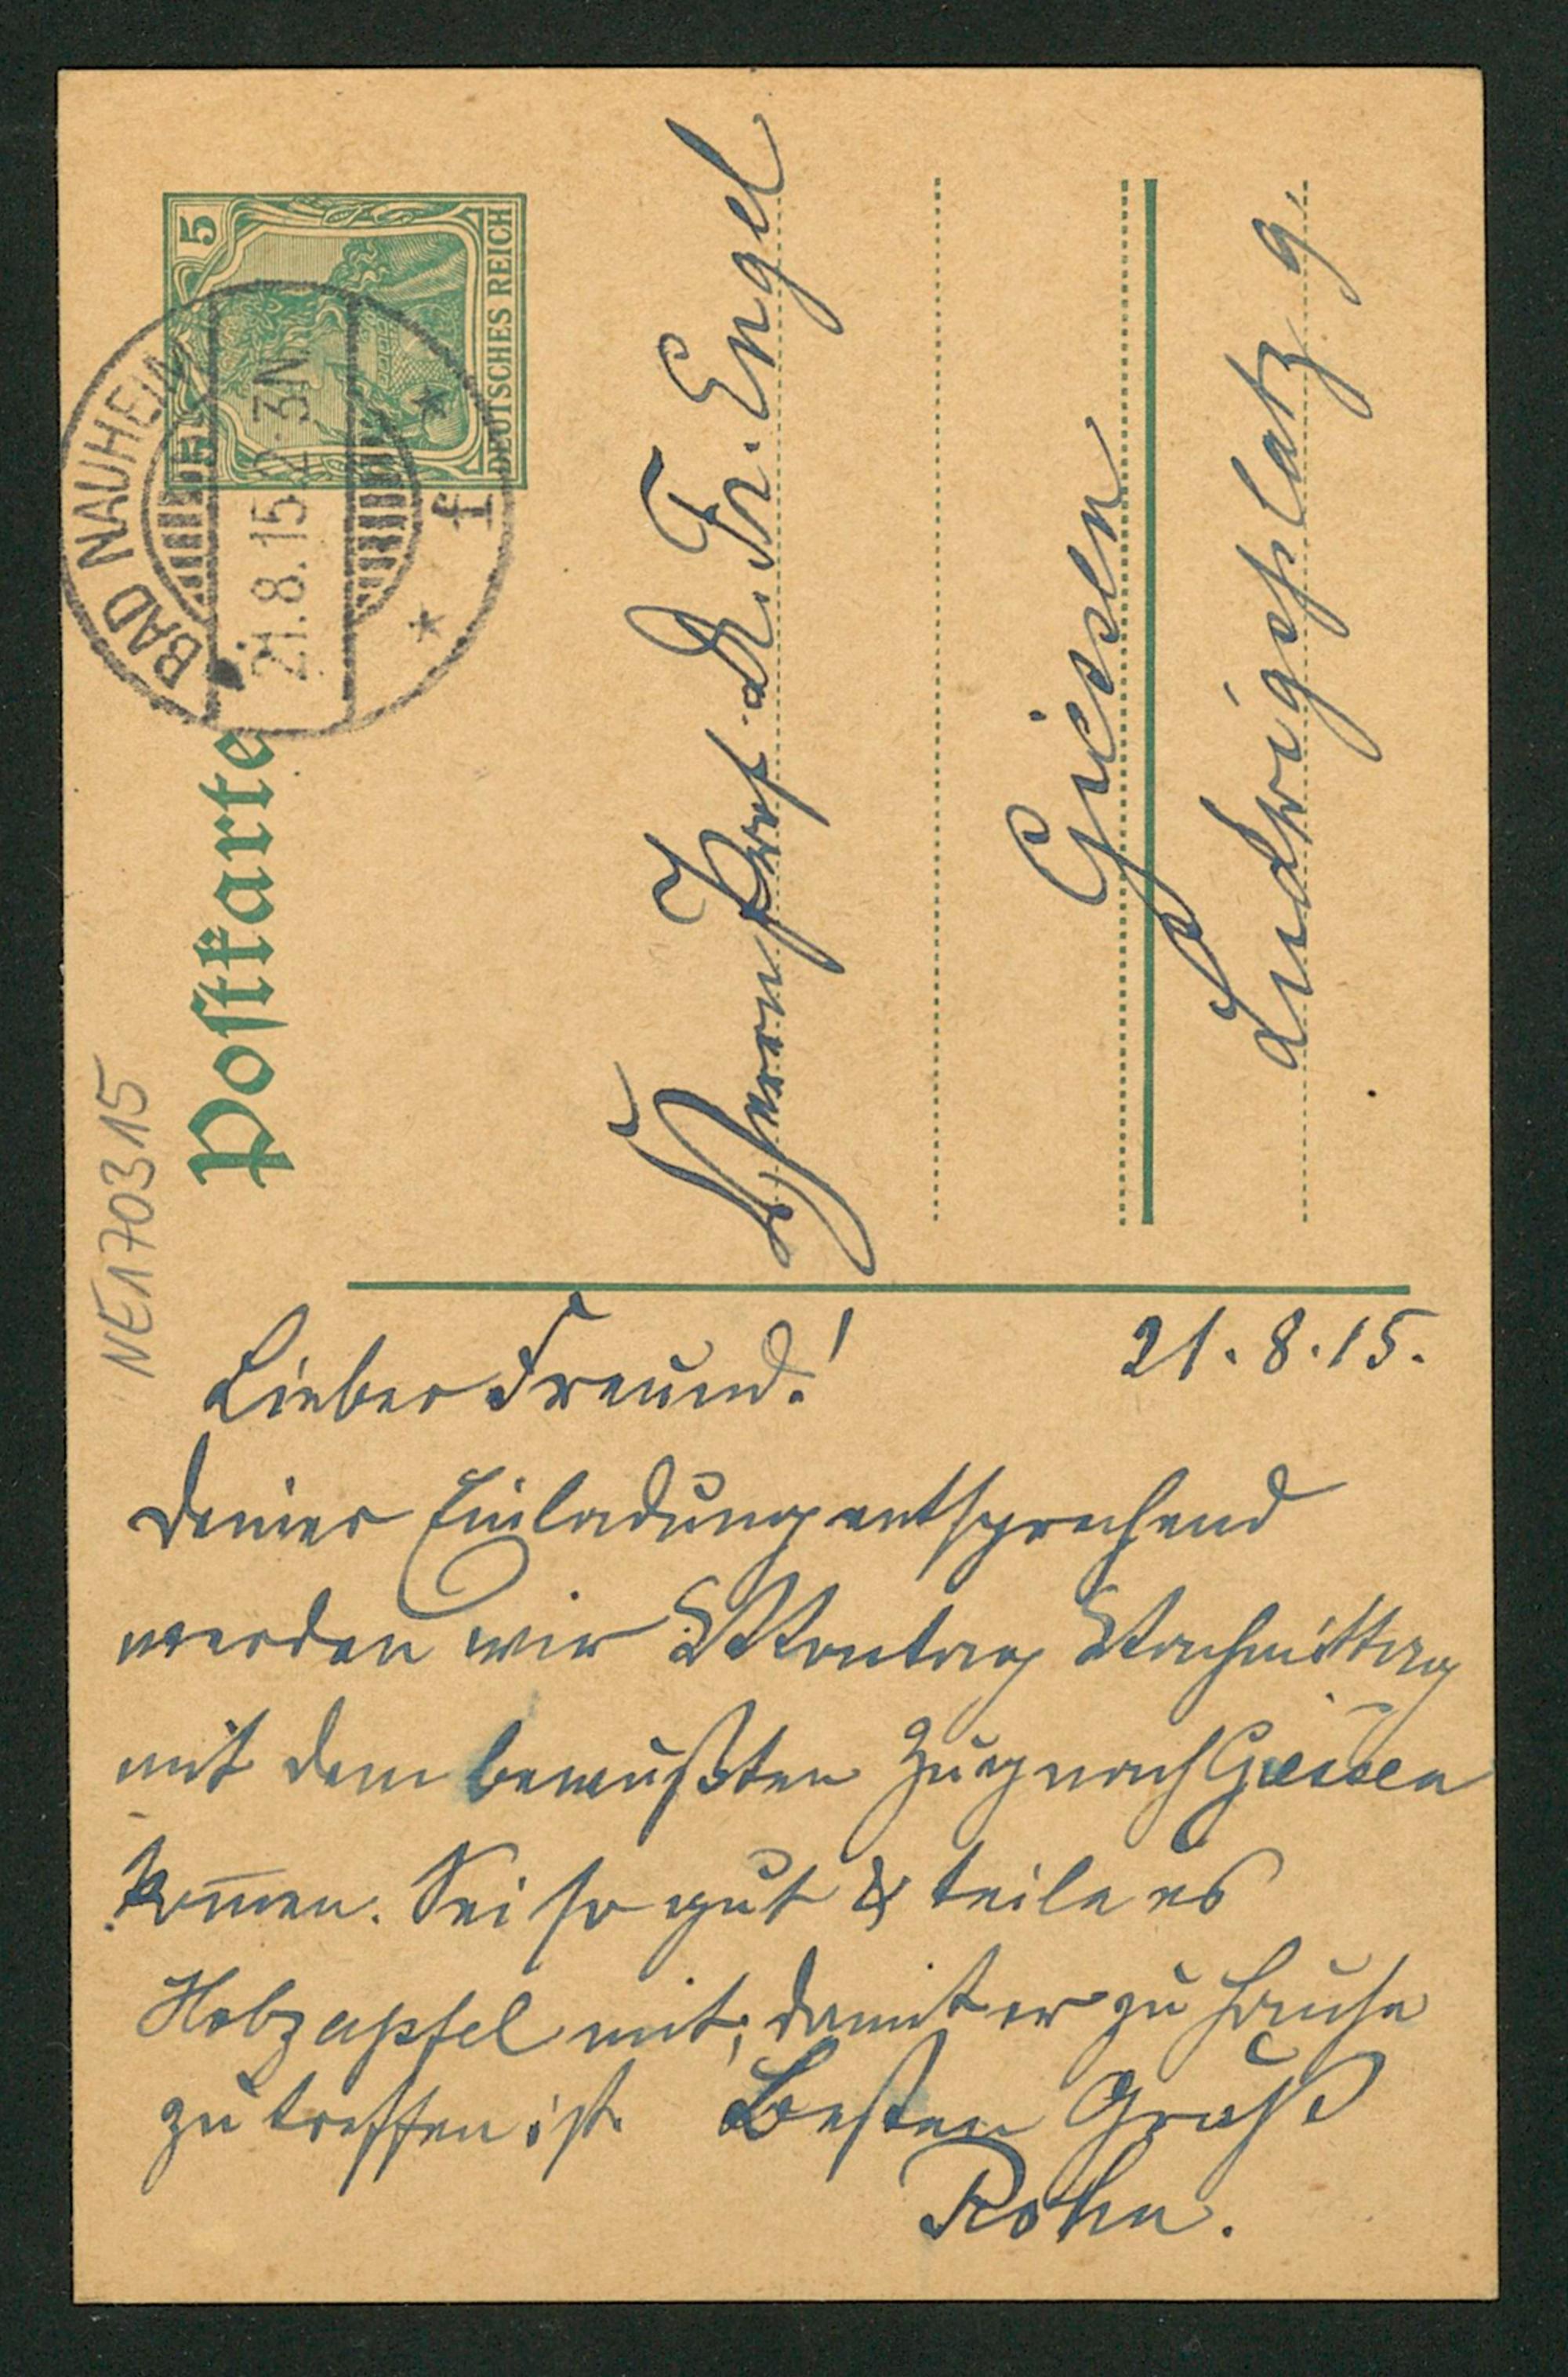 NE170315
Postkarte
5 5
DEUTSCHES REICH
BAD NAUHEIM
21.8.15. 2-3N
* f *
Herrn Prof. Dr. Fr. Engel
Giessen
Ludwigsplatz 9.
21.8.15.
Lieber Freund!
Deiner Einladung entsprechend
werden wir Montag Nachmittag
mit dem bewußten Zug nach Giessen
kom̅en. Sei so gut & teile es
Holzapfel mit, damit er zu Hause
zu treffen ist. Besten Gruß
Rohn.